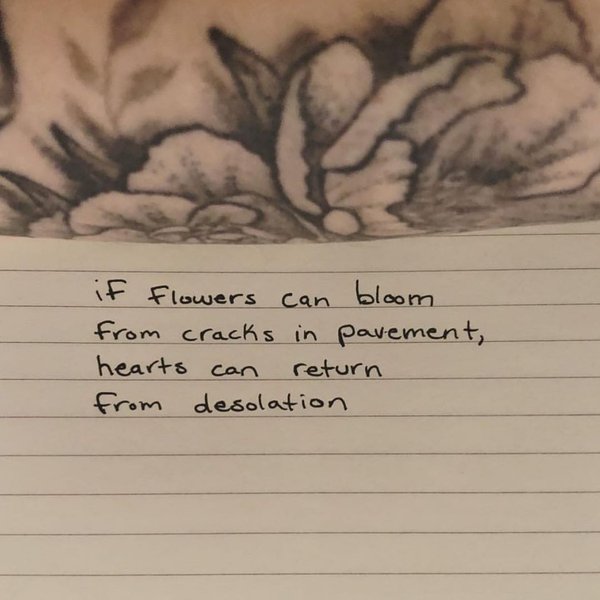 if flowers can bloom
from cracks in pavement,
hearts can return
from desolation